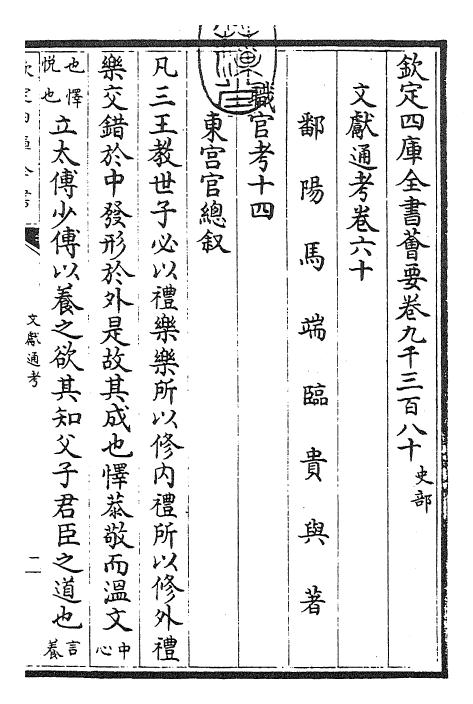 欽定四庫全書薈要卷九千三百八十 史部
文獻通考卷六十
鄱陽馬端臨貴與著
職官考十四
東宮官總叙
凡三王教世子必以禮樂樂所以修內禮所以修外禮
樂交錯於中發形於外是故其成也懌恭敬而溫文 中心
也懌悅也 立太傅少傅以養之欲其知父子君臣之道也 言養
文獻通考
二